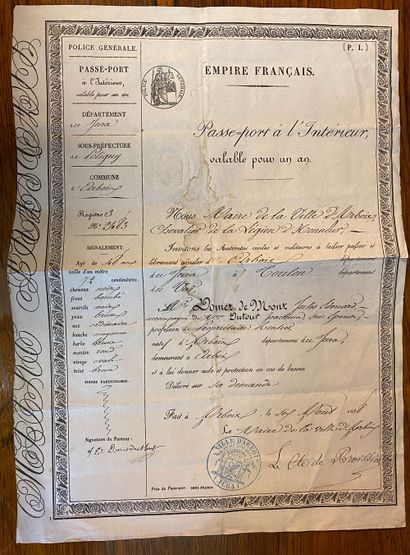 POLICE GÉNÉRALE.
PASSE-PORT
à l'Intérieur,
valable pour un an.
DÉPARTEMENT
du Jura
SOUS-PRÉFECTURE
de Poligny
COMMUNE
d'Arbois
Registre
N.º
SIGNALEMENT.
Agé de
taille d'un mètre
centimètres
cheveux noirs
front bombé
sourcils noirs
yeux bruns
nez ordinaire
bouche moyenne
barbe brune
menton rond
visage oval
teint brun
SIGNES PARTICULIERS.
Signature du Porteur
(P. I.)
EMPIRE FRANÇAIS.
Passe-port à l'Intérieur,
valable pour un an.
Nous Maire de la Ville d'Arbois
Chevalier de la Légion d'Honneur
Invitons les Autorités civiles et militaires à laisser passer et
librement circuler d Arbois département
du Jura à Toulon département
du Var
M. Domet de Mont Jules Edouard
accompagné de Dutour son épouse
profession de propriétaire rentier
natif d'Arbois département du Jura,
demeurant à Arbois
et à lui donner aide et protection en cas de besoin
Délivré sur sa demande
Fait à Arbois le
Le Maire de la ville d'Arbois
Prix du Passe-port : DEUX FRANCS.